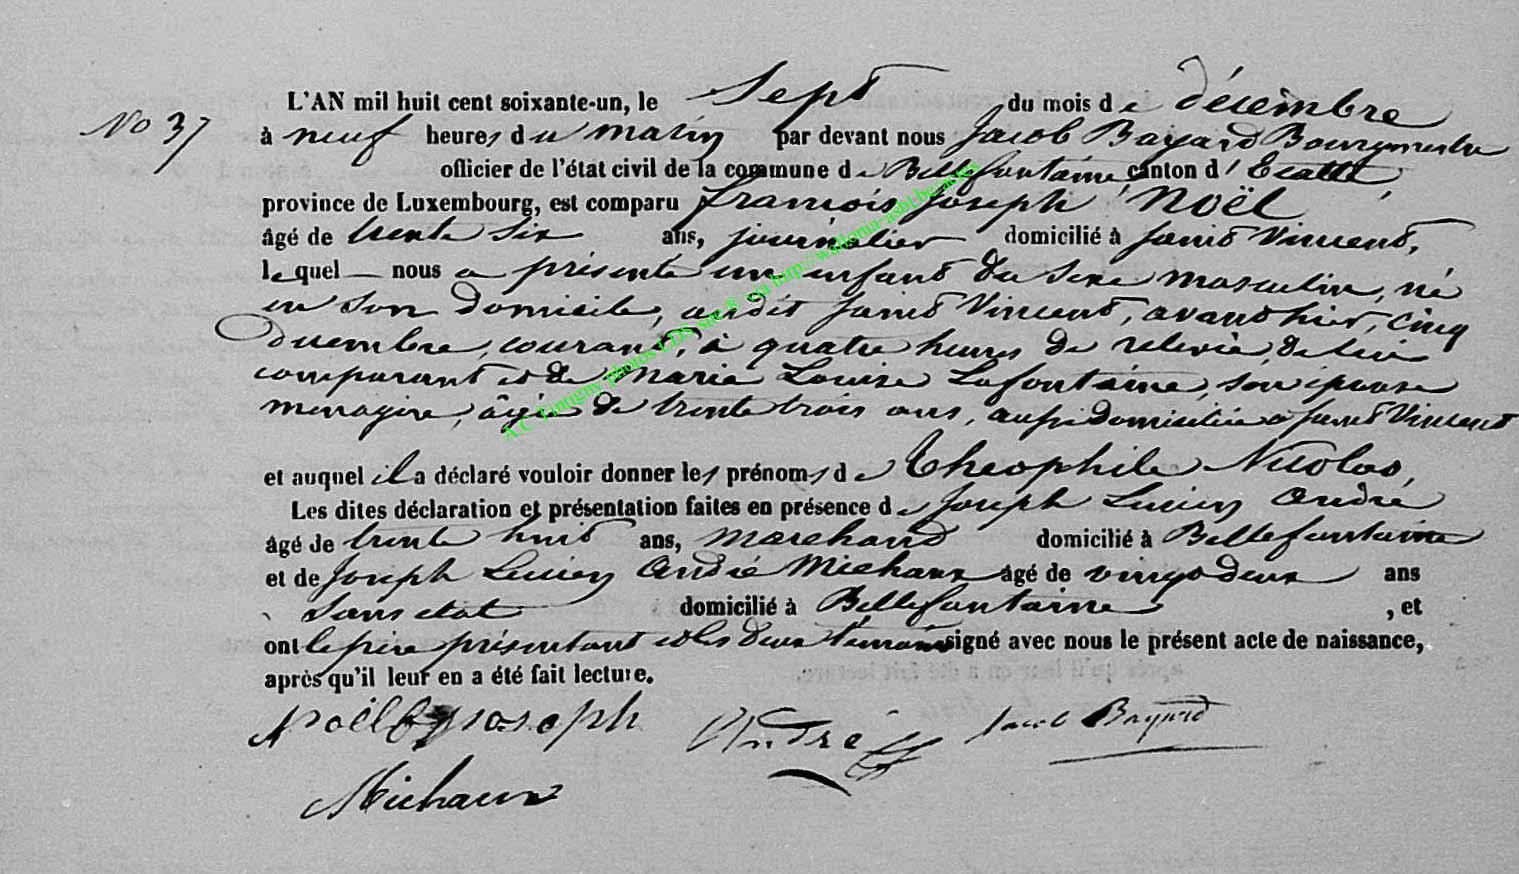 L'AN mil huit cent soixante-un, le Sept du mois de décembre
No 37
à neuf heures du matin par devant nous Jacob Bayard Bourgmestre
officier de l'état civil de la commune de Bellefontaine, canton d'Etalle,
province de Luxembourg, est comparu francois Joseph Noël
âgé de trente six ans, journalier domicilié à Saint Vincent,
lequel nous a présenté un enfant du sexe masculin, né
en son domicile, audit Saint Vincent, avant hier, cinq
decembre, courant, à quatre heures de relevée, de lui
comparant et de Marie Louise Lafontaine, son épouse
menagère, âgée de trente trois ans, aussi domiciliée à Saint Vincent
et auquel il a déclaré vouloir donner les prénoms de Théophile Nicolas,
Les dites déclaration et présentation faites en présence de Joseph Lucien André
âgé de trente huit ans, marchand domicilié à Bellefontaine
et de Joseph Lucien André Michaux âgé de vingt deux ans
Sans etat domicilié à Bellefontaine , et
ont le père présentant et les deux témoins signé avec nous le présent acte de naissance,
après qu'il leur en a été fait lecture.
Noël joseph André Jacob Bayard
Michaux
A.C Tintigny photos LDS, site ® via http://wallonia-asbl.be/actes